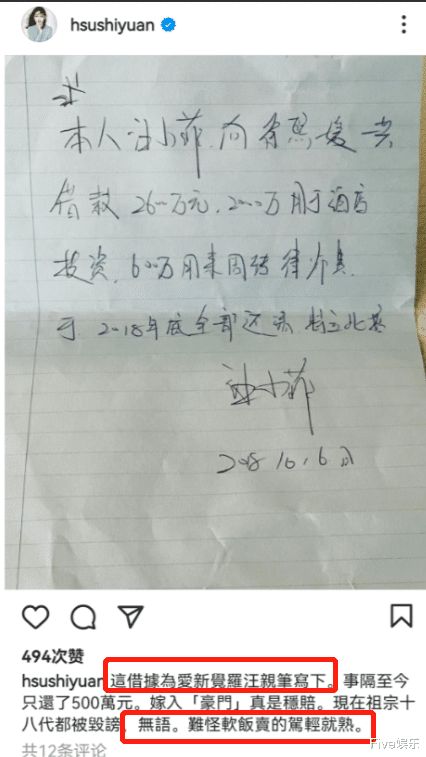 hsushiyuan
本人汪小菲,向徐熙媛共
借款2600万元,2000万用于酒店
投资,600万用来周转律师费.
于2018年底全部还清 特立此据
汪小菲
2018.10.6日
494次赞
hsushiyuan 這借據為愛新覺羅汪親筆寫下。事隔至今
只還了500萬元。嫁入「豪門」真是穩賠。現在祖宗十
八代都被毀謗,無語。難怪軟飯賣的駕輕就熟。
共12条评论
Five娱乐